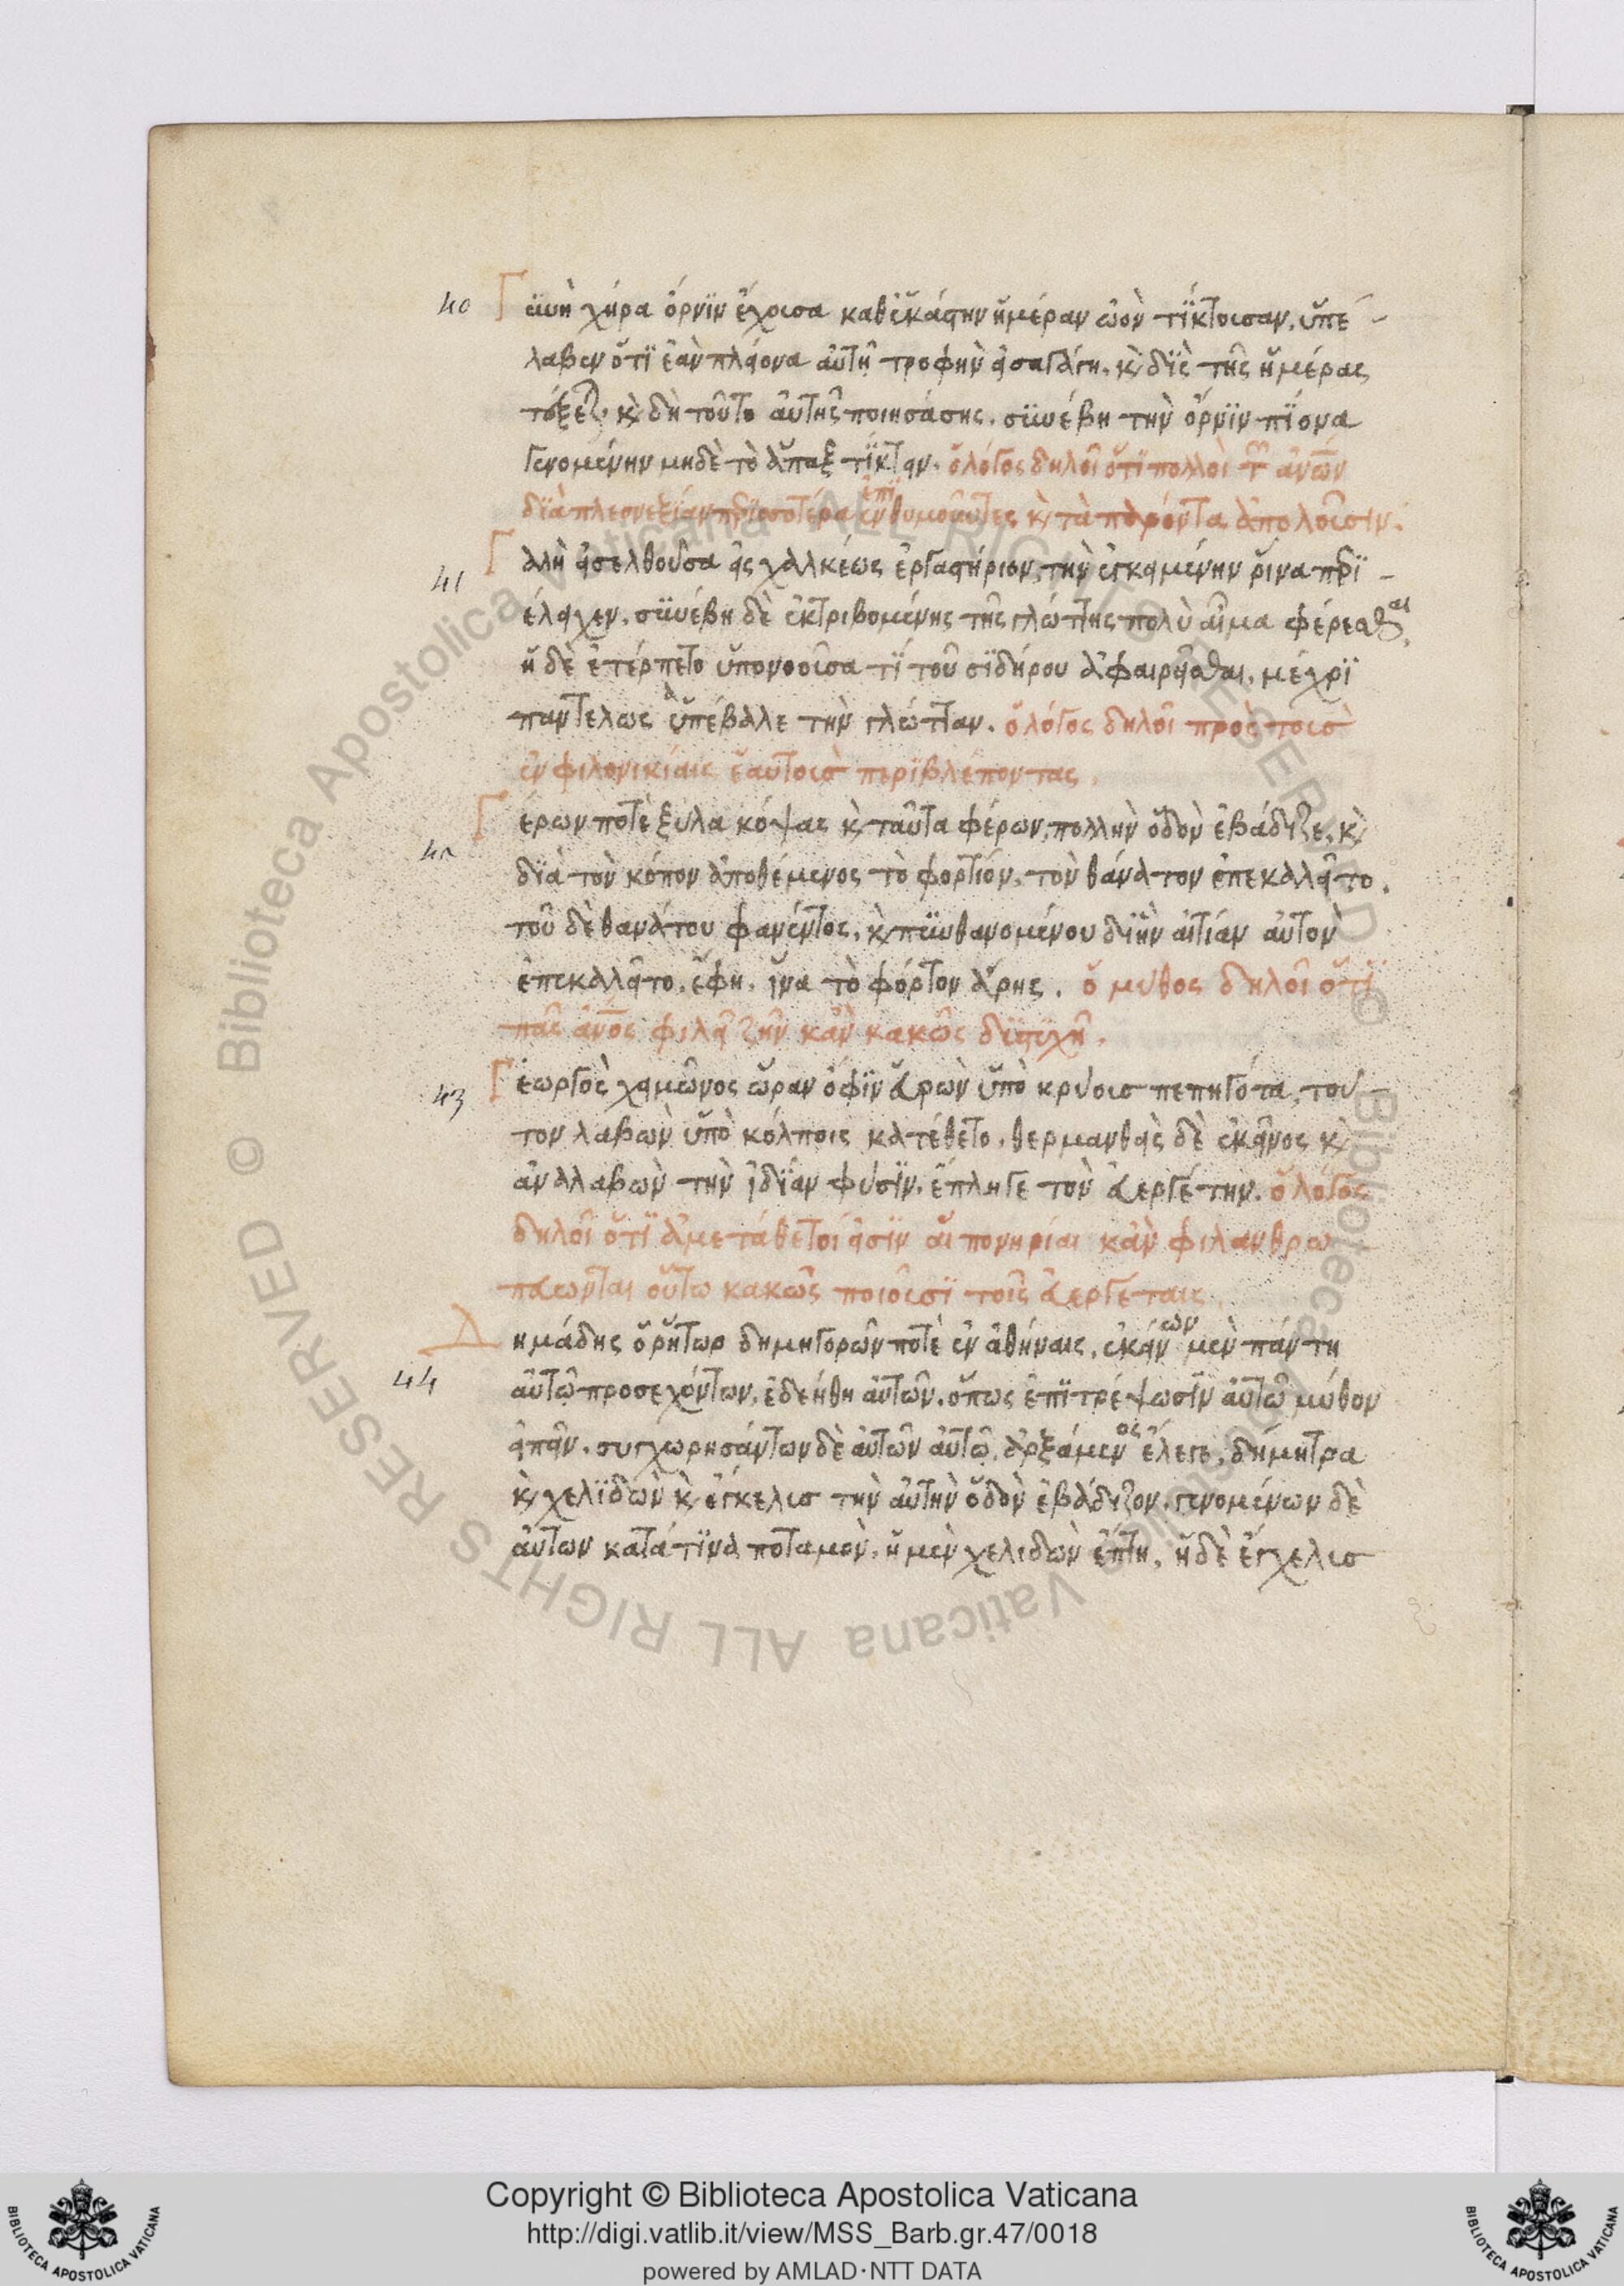 40 Γυνὴ χήρα ὄρνιν ἔχουσα καθ' ἑκάστην ἡμέραν ὠὸν τίκτουσαν, ὑπέ-
λαβεν ὅτι ἐὰν πλείονα αὐτῇ τροφὴν εἰσαγάγῃ, κ δὶς τῆς ἡμέρας
τέξε. κ δὴ τοῦτο αὐτῆς ποιησάσης, συνέβη τὴν ὄρνιν πίονα
γενομένην μηδὲ τὸ ἅπαξ τίκτειν. ὁ λόγος δηλοῖ ὅτι πολλοὶ τῶν ἀνων
διὰ πλεονεξίαν περισσοτέρα ἐπιθυμοῦντες κ τὰ παρόντα ἀπολοῦσιν.
41 Γαλῆ εἰσελθοῦσα εἰς χαλκέως ἐργαστήριον, τὴν ἐγκειμένην ῥίνα περι-
έλειχεν. συνέβη δὲ ἐκτριβομένης τῆς γλώττης πολὺ αἷμα φέρεσθαι,
ἡ δὲ ἐτέρπετο ὑπονοοῦσα τί τοῦ σιδήρου ἀφαιρεῖσθαι, μέχρι
παντελως ἀπέβαλε τὴν γλώτταν. ὁ λόγος δηλοῖ πρὸς τοὺσ
ἐν φιλονικίαις ἑαυτοὺσ περιβλέποντας.
42 Γέρων ποτὲ ξύλα κόψας κ ταῦτα φέρων, πολλὴν ὁδὸν ἐβάδιζε, κ
διὰ τὸν κόπον ἀποθέμενος τὸ φορτίον, τὸν θάνατον ἐπεκαλεῖτο.
τοῦ δὲ θανάτου φανέντος, κ πυνθανομένου δι' ἣν αἰτίαν αὐτὸν
ἐπεκαλεῖτο, ἔφη, ἵνα τὸ φόρτον ἄρης. ὁ μῦθος δηλοῖ ὅτι
πᾶς ἄνος φιλεῖ ζῆν κἂν κακῶς διστυχῆ.
43 Γεωργὸς χειμῶνος ὥραν ὄφιν εὑρὼν ὑπὸ κρύουσ πεπηγότα, τοῦ-
τον λαβὼν ὑπὸ κόλποις κατέθετο. θερμανθεὶς δὲ ἐκεῖνος κ
ἀναλαβὼν τὴν ἰδίαν φύσιν, ἔπληγε τὸν εὐεργέτην. ὁ λόγος
δηλοῖ ὅτι ἀμετάθετοί εἰσιν αἱ πονηρίαι κἂν φιλανθρω-
πεύωνται οὕτω κακῶς ποιοῦσι τοῖς εὐεργέταις.
44 Δημάδης ὁ ῥήτωρ δημηγορῶν ποτὲ ἐν ἀθήναις, ἐκείνων μὲν πάντη
αὐτῷ προσεχόντων, ἐδεήθη αὐτῶν, ὅπως ἐπιτρέψωσιν αὐτῷ μύθον
εἰπεῖν. συγχωρησάντων δὲ αὐτῶν αὐτῷ, ἀρξάμενος ἔλεγε, δήμητρα
κ χελιδὼν κ ἔγκελισ τὴν αὐτὴν ὁδὸν ἐβάδιζον. γενομένων δὲ
αὐτων κατά τινα ποταμὸν, ἡ μὲν χελιδὼν ἔπτη, ἡ δὲ ἔγχελισ
Copyright © Biblioteca Apostolica Vaticana
http://digi.vatlib.it/view/MSS_Barb.gr.47/0018
powered by AMLAD·NTT DATA
BIBLIOTECA APOSTOLICA VATICANA
BIBLIOTECA APOSTOLICA VATICANA